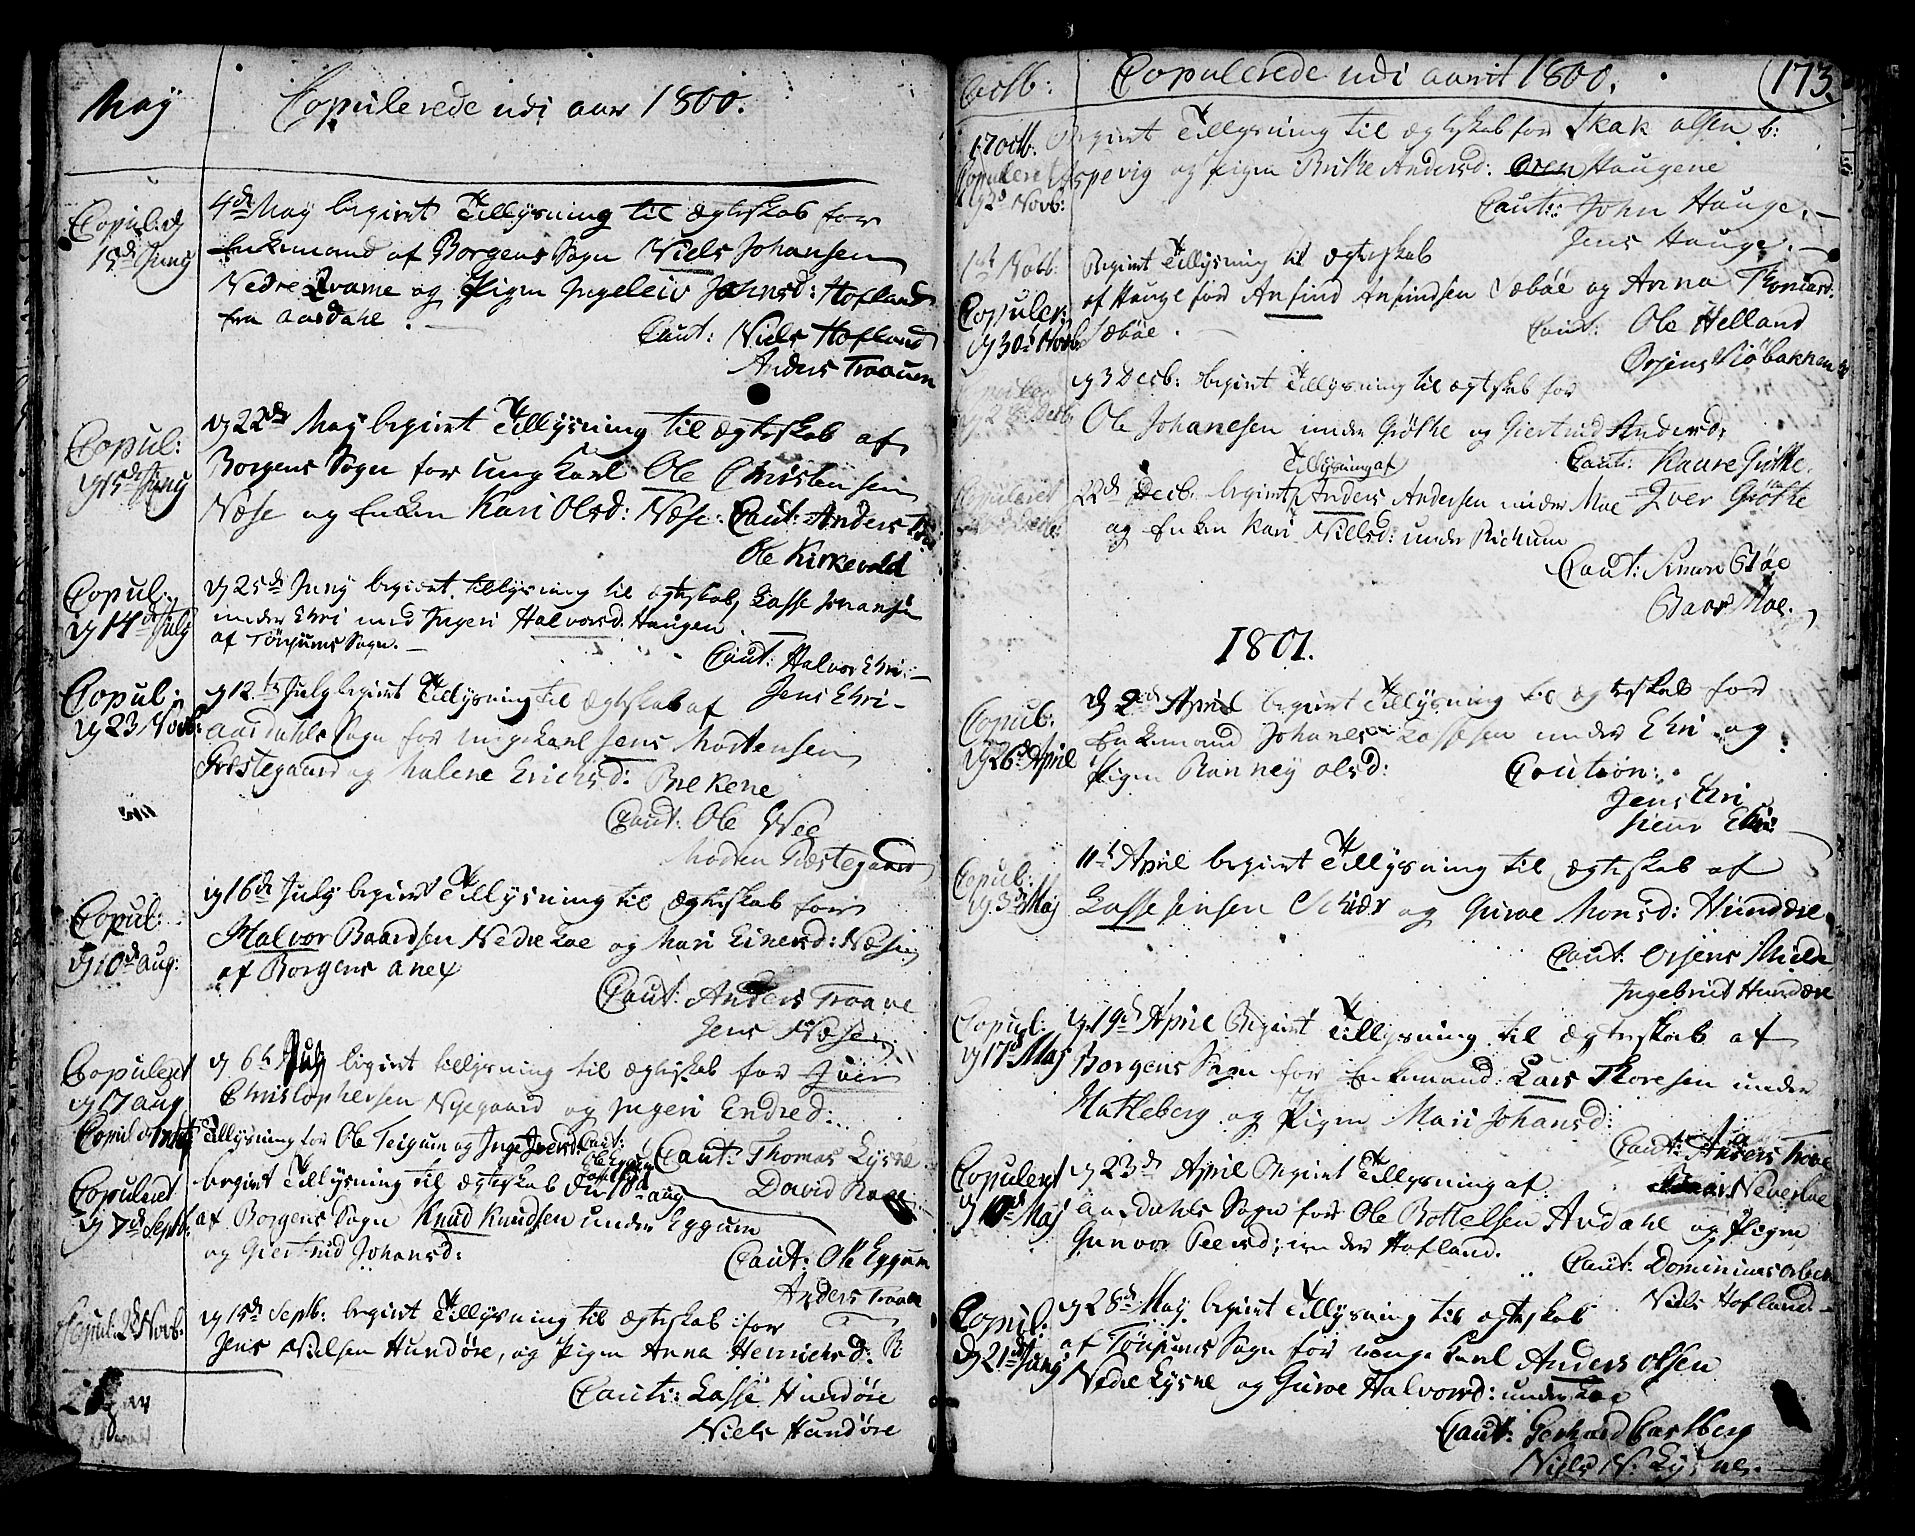 May
Copulerede udi aar 1800.
Copul: d
15de Juny
4de May begiært Tillysning til ægteskab for
Enkemand af Borgens Sogn Niels Johansen
Nedre Qvame og Pigen Ingeleiv Johnsd: Hofland
fra Aardahl.
Caut: Niels Hofland
Anders Traaven
Copul:
d 15de Juny
d 22de May begiært Tillysning til ægteskab af
Borgens Sogn for Ung Karl Ole Christensen
Næse og Enken Kari Olsd: Næse. Caut: Anders
Ole Kirkevold
Copul:
d 14de July
d 25de Juny begiært tillysning til ægteskab, Lasse Johansen
under Ehri med Ingeri Halvorsd. Haugen
af Tönjums Sogn.
Caut: Halvor Ehri
Jens Ehri
Copul:
d 23 Novb:
d 12te July begiært Tillysning til ægteskab af
Aardahls Sogn for ungkarl Jens Mortensen
Præstegaard og Malene Erichsd: Brekene
Caut: Ole Wee
Morten Præstegaard
Copul:
d 10de aug:
d 16de July begiært Tillysning til ægteskab for
Halvor Baardsen Nedre Loe og Mari Einersd: Næse
af Borgens anex
Caut: Anders Traave
Jens Næse
Copuleret
d 17 aug
d 6t July begiært tillysning til ægteskab for Iver
Christophersen Nyegaard og Ingeri Endred:
Caut: Thomas Lysne
David
Tillysning for Ole Teigum og Inge Iversd: Caut:
Ole Eggum
Copuleret
d 7de Septb:
begiært Tillysning til ægteskab den 10de aug
af Borgens Sogn Knud Knudsen under Eggum
og Giertrud Johansd:
Caut: Ole Eggum
Anders Traave
Copul: 2de Novb.
d 15de Septb: begiært Tillysning til ægteskab for
Jens Nielsen Hundöre, og Pigen Anna Henrichsd:
Caut: Lasse Hundöre
Niels Hundöre
Octb:
Copulerede udi aaret 1800.
173.
17 Octb: Begiært Tillysning til ægteskab for Skak Olsen
Espevig og Pigen Brithe Andersd: Haugene
Copuleret
d 2d Novb:
Caut: John Hauge.
Jens Hauge.
1st Novb: Begiært Tillysning til ægteskab
af Hauge for Anfind Anfindsen Sæbøe og Anna Thomasd.
Sæbøe.
Copuler:
d 30d Novb:
Caut: Ole Helland
Örjens Siöbakken
d 3 Decb: begiært Tillysning til ægteskab for
Ole Johanesen under Gröthe og Giertrud Andersd:
Caut: Kaare Gröthe.
Iver Gröthe
Copuleret
22de Decb. begiært Tillysning af Anders Andersen under Moe
og Enken Kari Nielsd: under Rickum
Caut: Simen Støe
Baar Moe.
1801.
Copul:
d 26de April
d 2de April begiært Tillysning til ægteskab for
Enkemand Johanes Lassesen under Ehri og
Pigen Ranney Olsd:
Caution:
Jens Ehri
Siur Ehri
Copul:
d 3de Maj
11te April begiært Tillysning til ægteskab af
Lasse Jensen Schiær og Guroe Monsd: Hundere
Caut: Örjens Mield
Ingebrict Hundere
Copul:
d 17de Maj
d 19de April Begiært Tillysning til ægteskab af
Borgens Sogn for Enkemand Lars Thoresen under
Hatleberg og Pigen Mari Johansd:
Caut: Anders Trove
Neverloe
Copuleret
d 10de Maj
d 23de April Begiært Tillysning af
Aardahls Sogn for Ole Bottelsen Ardahl og Pigen
Gunvor Peersd: under Hofland.
Caut: Dominicus
Niels Hofland
Copul:
d 21de Juny
d 28de May begiært Tillysning til ægteskab
af Tönjums Sogn for unge karl Anders Olsen
Nedre Lysne og Guroe Halvorsd: under Loe
Caut: Gerhard Castberg
Niels N: Lysne.